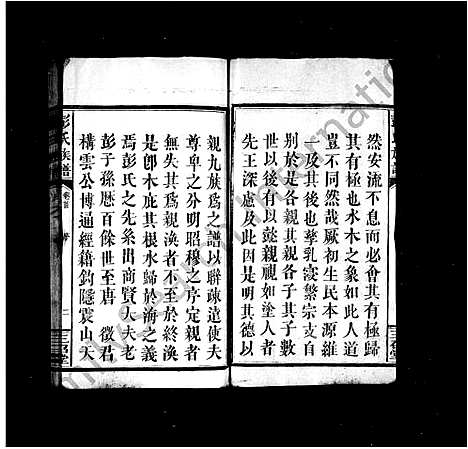 然安流不息而必會其有極歸
其有極也水木之象如此人道
豈不同然哉厥初生民本源維
一及其後也孳乳寖繁宗支自
別於是各親其親各子其子數
世以後有以懿親視如塗人者
先王深慮及此因是明其德以
親九族為之譜以聯疎遠使夫
尊卑之分明昭穆之序定親者
無失其為親渙者不至於終渙
是卽木庇其根水歸於海之義
焉彭氏之先系出商賢大夫老
彭子孫曆百餘世至唐 徵君
構雲公博通經籍鈎隱震山天
彭氏族譜
卷首
二